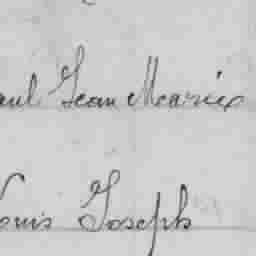 aul Jean Marie
ouis Joseph